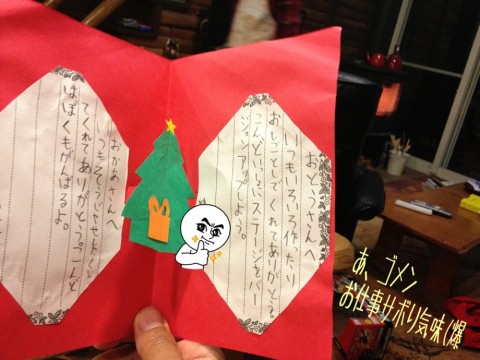 おとうさんへ
いつもいろいろ作ったり
おしごとしてくれてありがとう。
こんどいっしょにステージをバー
ジョンアップしよう。
おかあさんへ
てくれてありがとう。こんど
はぼくもがんばるよ。
あ、ゴメン
お仕事サボり気味(爆